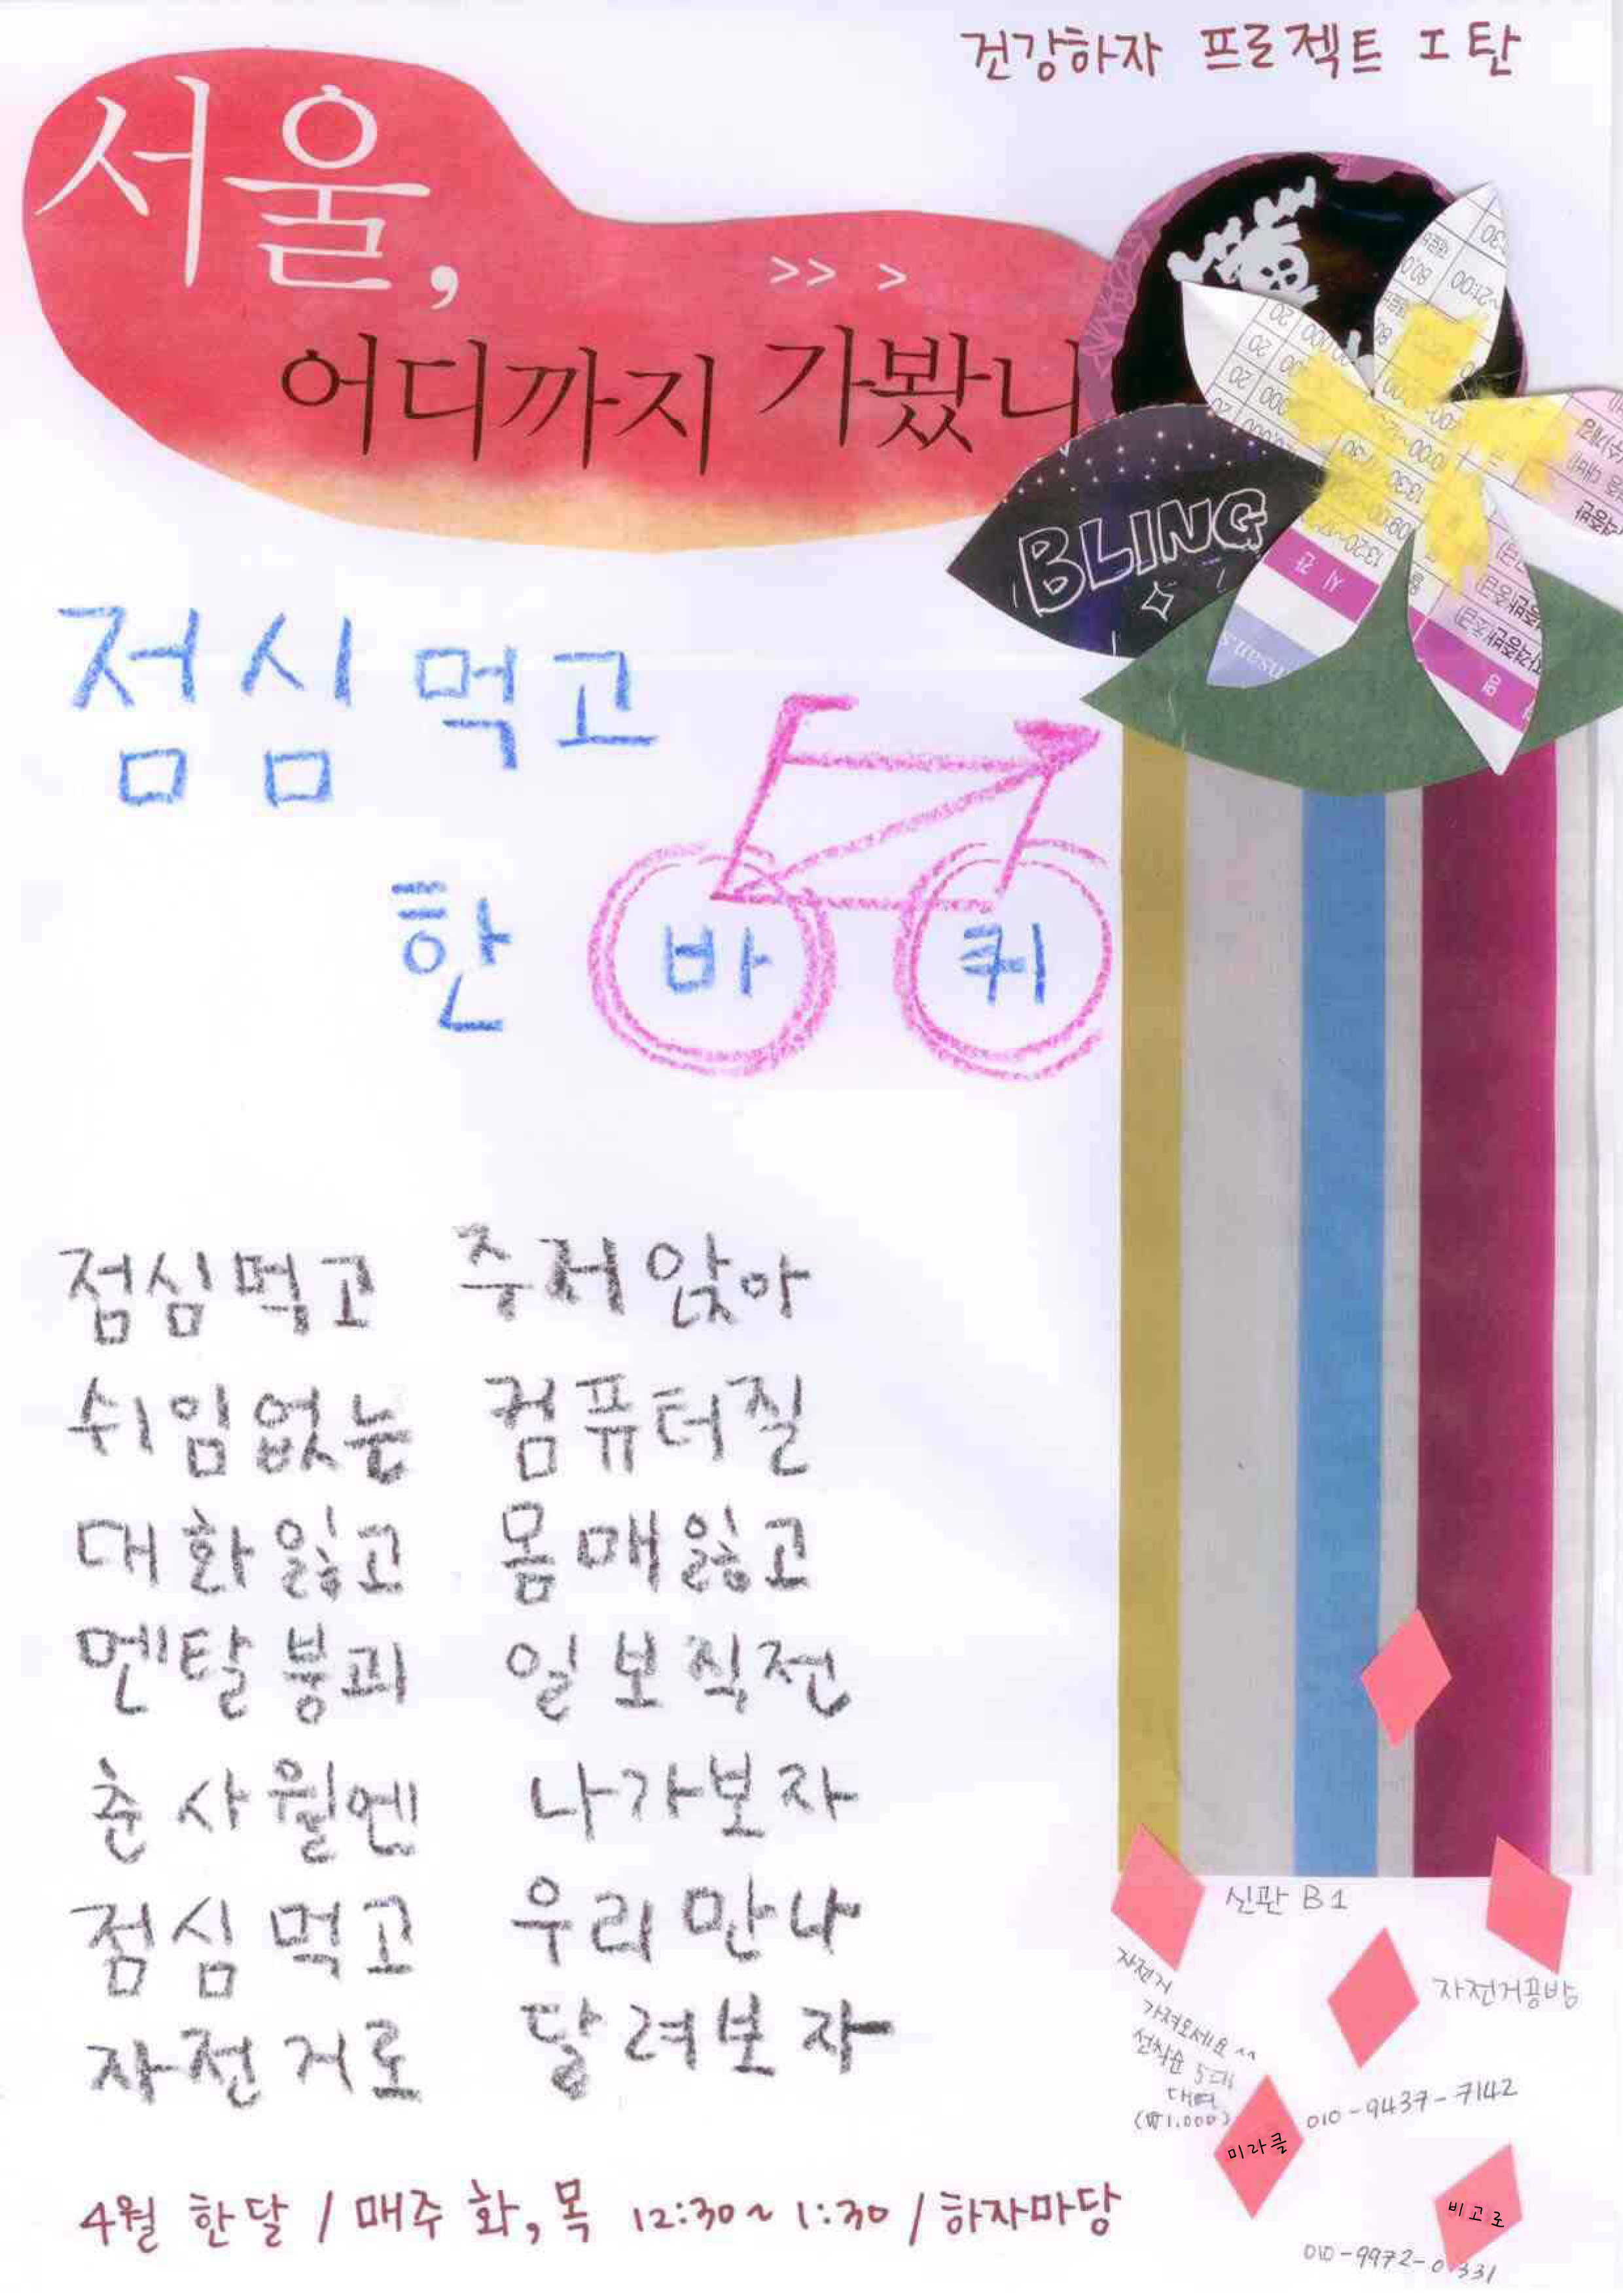 건강하자 프로젝트 I탄
서울,
>> >
어디까지 가봤니
BLING
점심 먹고
한 바퀴
점심먹고 주저앉아
쉬임없는 컴퓨터질
대화잃고 몸매잃고
멘탈붕괴 일보직전
춘사월엔 나가보자
점심먹고 우리만나
자전거로 달려보자
신관 B1
자전거공방
자전거
가져오세요^^
선착순 5대
대여
(₩1,000)
010-9437-7142
미라클
비고로
010-9972-0331
4월 한달 / 매주 화,목 12:30~1:30 / 하자마당